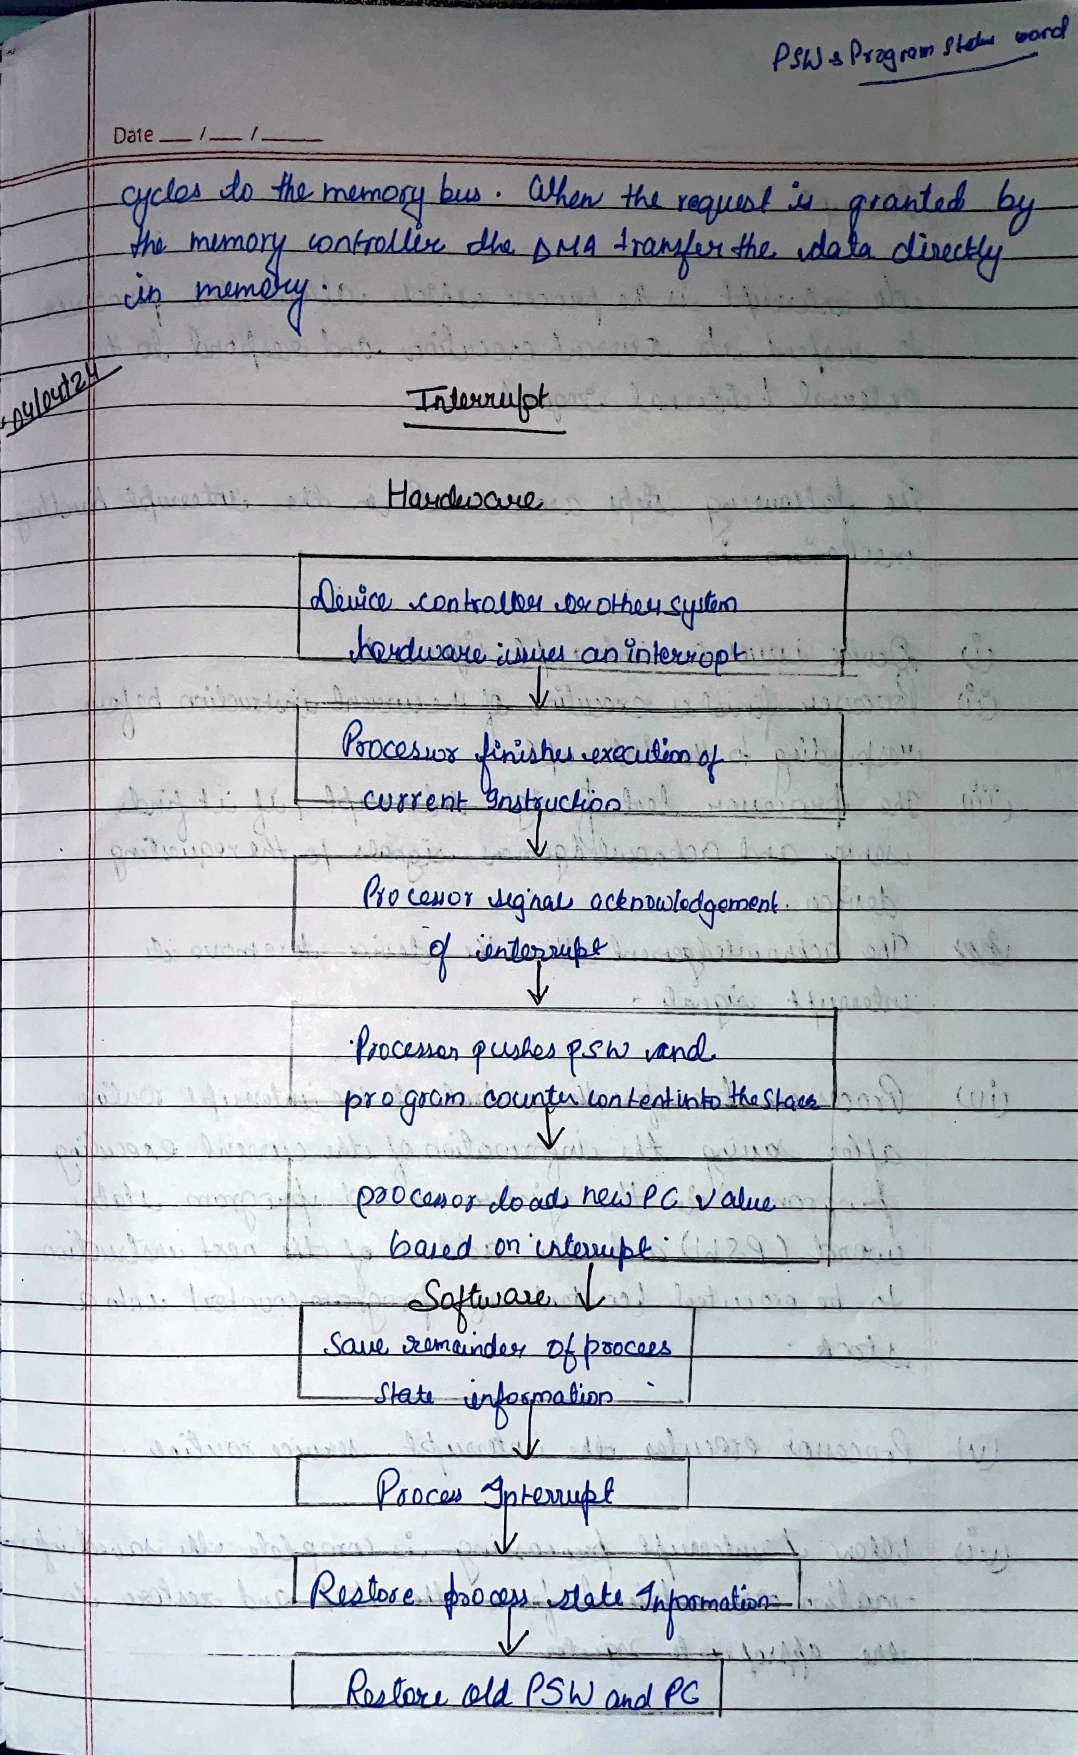 PSW → Program Status word
Date __ / __ / ____
cycles to the memory bus. When the request is granted by
the memory controller the DMA transfer the data directly
in memory.
04/04/24
Interrupt
Hardware
Device controller or other system
hardware issues an interropt
Processor finishes execution of
current Instruction
Processor signals acknowledgement.
of interrupt
Processor pushes PSW and
program counter content into the stack
processor loads new PC value
based on interrupt.
Software
Save remainder of process
state information
Process Interrupt
Restore process state Information
Restore old PSW and PC